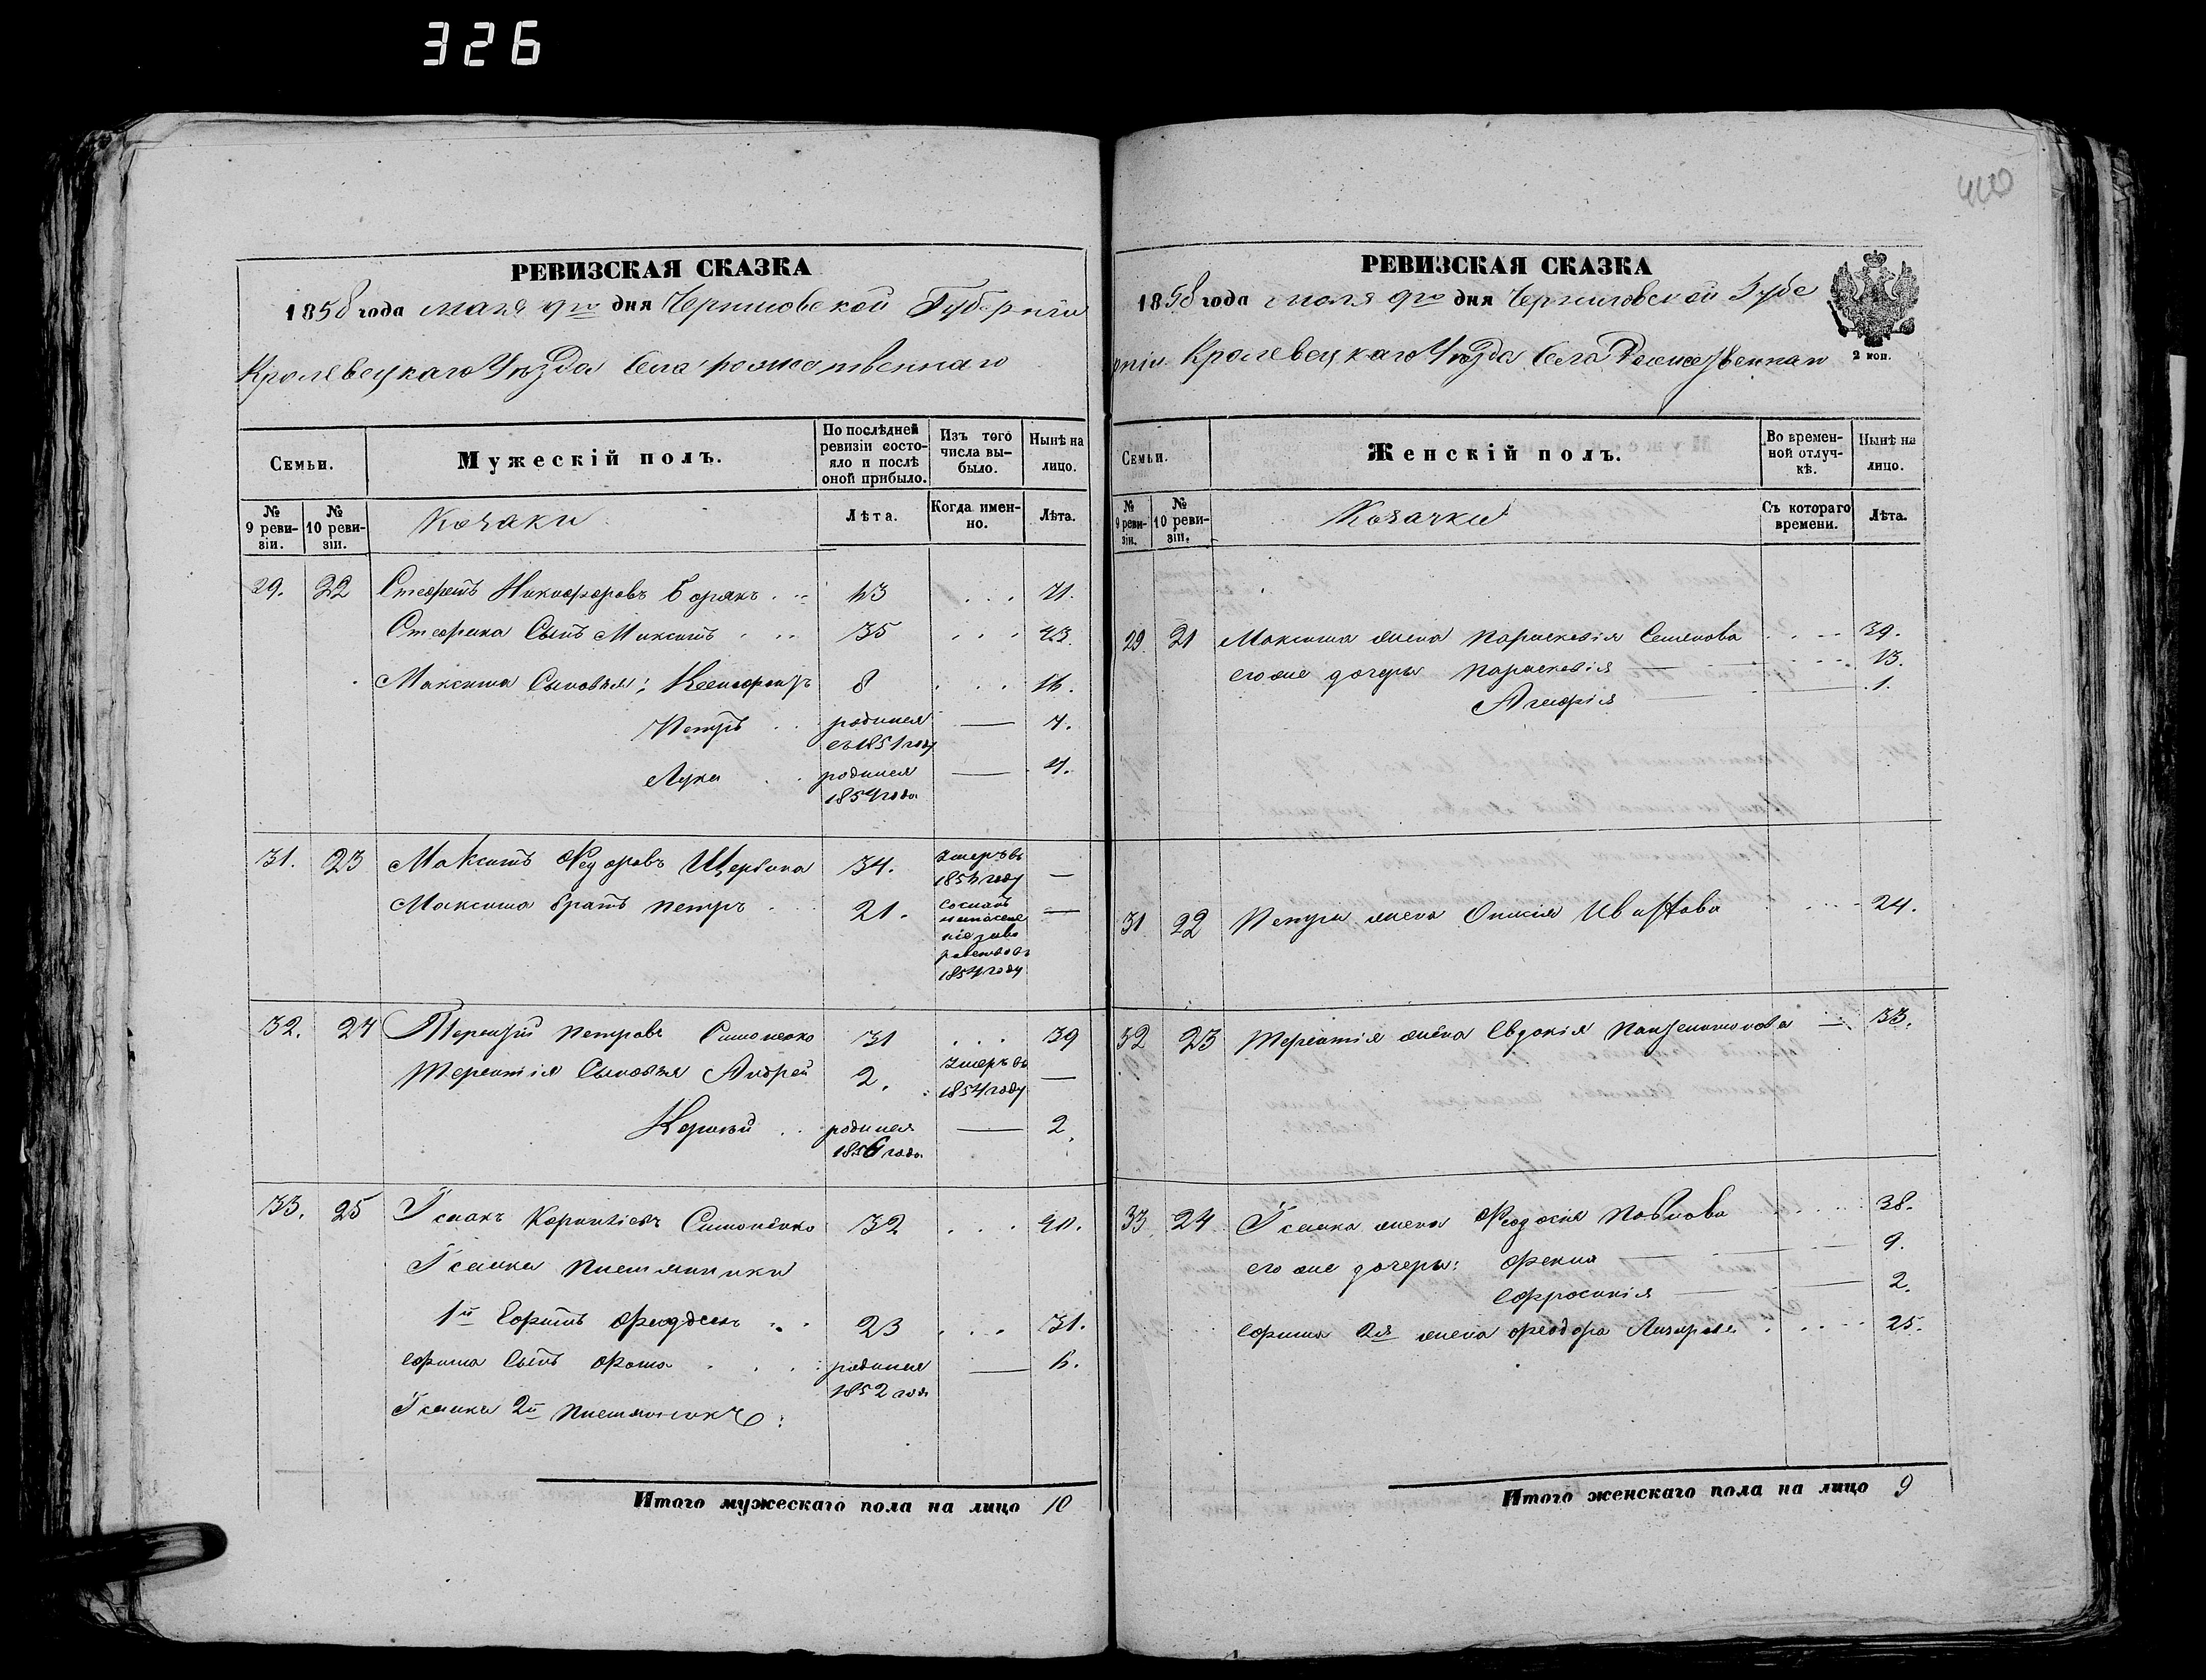 326
400
РЕВИЗСКАЯ СКАЗКА
1858 года мая 9го дня Черниговской Губерніи
Кролевецкаго Уѣзда Села рожественнаго
Семьи.
Мужескій полъ.
По послѣдней ревизіи состояло и послѣ оной прибыло.
Изъ того числа выбыло.
Нынѣ на лицо.
№ 9 ревизіи.
№ 10 ревизіи.
Козаки
Лѣта.
Когда именно.
Лѣта.
29. 22 Стефанъ Никифоровъ Борякъ 63 . . . 71.
Стефана Сынъ Максимъ 35 . . . 43.
Максима Сыновья: Ксенофонтъ 8 . . . 16.
Петръ родился въ 1851 году — 7.
Лука родился 1854 года — 4.
31. 23 Максимъ Федоровъ Щербина 34. Умеръ въ 1856 году —
Максима братъ петръ 21. 1854 году —
32. 24 Терентій петровъ Симоненко 31 . . . 39
Терентія Сыновья Андрей 2. Умеръ въ 1854 году —
Корнѣй родился 1856 года — 2.
33. 25 Ісаакъ Корнѣіевъ Симоненко 32 . . . 40.
Ісаака племянники
1й Ефимъ 23 . . . 31.
Ефима Сынъ Фома родился 1852 года — 6.
Ісаака 2й племянникъ:
Итого мужескаго пола на лицо 10
РЕВИЗСКАЯ СКАЗКА
1858 года мая 9го дня Черниговской Губе
рніи Кролевецкаго Уѣзда Села Рожественнаго
2 коп.
Семьи.
Женскій полъ.
Во временной отлучкѣ.
Нынѣ на лицо.
№ 9 ревизіи.
№ 10 ревизіи.
Козачки
Съ котораго времени.
Лѣта.
29 21 Максима жена Параскевія Семенова . . . 39.
его же дочери Параскевія — 13.
Агафія — 1.
31 22 Петра жена . . . 24.
32 23 Терентія жена Евдокія Пантелимонова — 33.
33 24 Ісаака жена Феодосія Павлова . . . 38.
его же дочери: Фекла — 9.
Ефросинія — 2.
Ефима 2я жена феодора . . . 25.
Итого женскаго пола на лицо 9